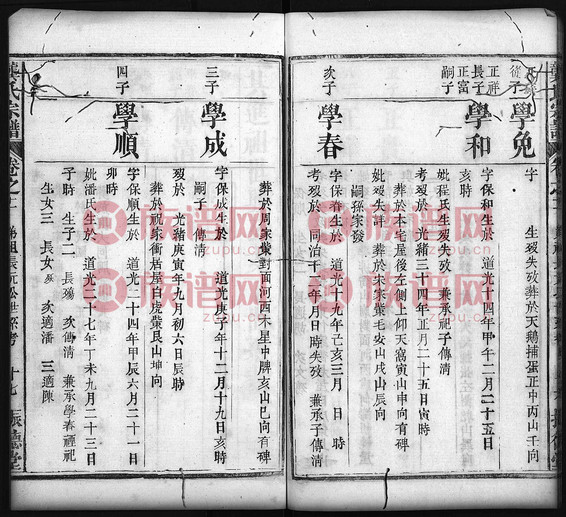 學免
字
生歿失攷葬於天鵝捕蛋正中丙山壬向
正祥長子
正富嗣子
學和
字保和生於 道光二十四年甲午二月二十五日
亥時
妣程氏生歿失攷 兼承祀子傳清
考歿於 光緒三十四年正月二十五日寅時
葬於本宅屋後左側上仰天窩寅山申向有碑
妣歿失攷 葬於朱家葉毛安山戌山辰向
嗣孫家發
次子
學春
字保春生於 道光十九年己亥三月 日 時
考歿於 同治十一年 月 日時失攷 兼承子傳清
葬於周家葉對面何西木星中脾亥山巳向有碑
三子
學成
字保成生於 道光庚子年十二月十九日亥時
嗣子 傳清
歿於 光緒庚寅年九月初六日辰時
葬於祝家衝居屋白虎葉艮山坤向
四子
學順
字保順生於 道光二十四年甲辰六月二十一日
卯時
妣潘氏生於 道光二十七年丁未九月二十三日
子時 生子二 長殤 次傳清 兼承學春禋祀
生女三 長女殤 次適潘 三適陳
龔氏宗譜 卷之二
十七
族谱网
zupu.cn